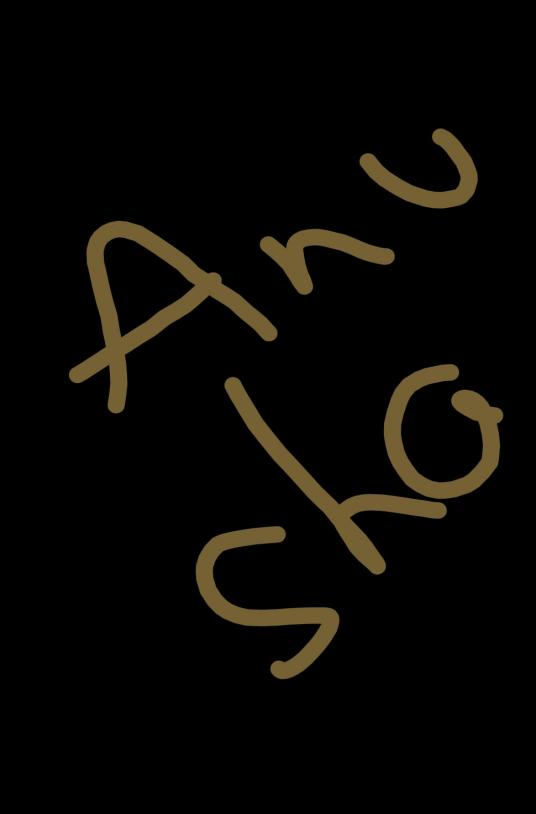 Anu
Sho